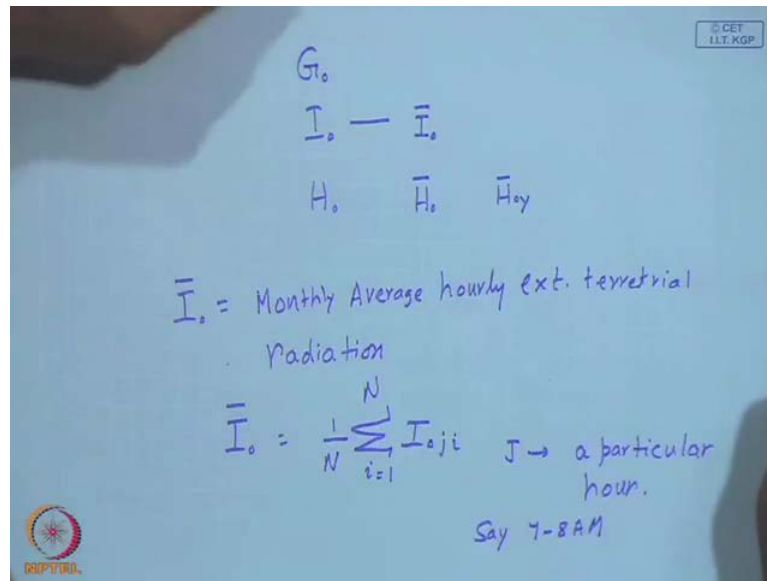 © CET
I.I.T. KGP
G₀
I₀ — Ī₀
H₀ H̄₀ H̄₀y
Ī₀ = Monthly Average hourly ext. terretrial
radiation
Ī₀ = 1/N ∑ᵢ₌₁ᴺ I₀ji J → a particular
hour.
Say 7-8AM
NPTEL